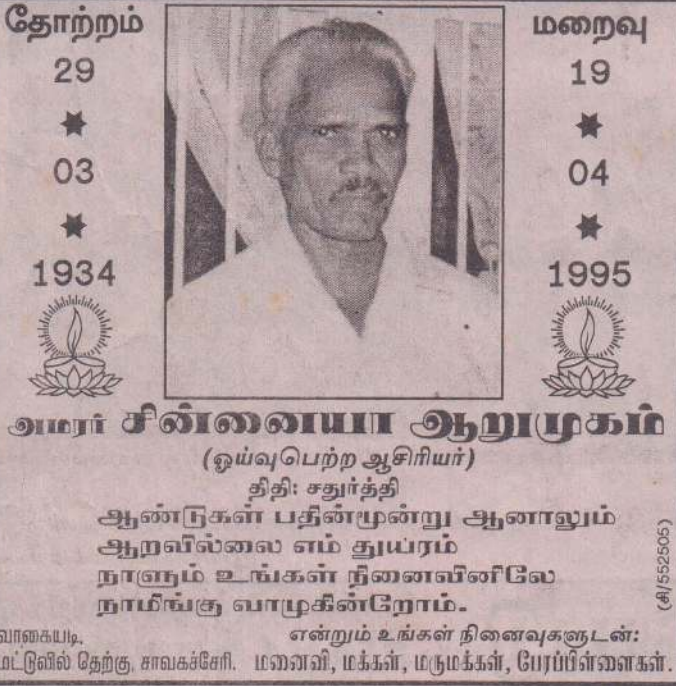 தோற்றம்
29
03
1934
மறைவு
19
04
1995
அமரர் சின்னையா ஆறுமுகம்
(ஓய்வுபெற்ற ஆசிரியர்)
திதி: சதுர்த்தி
ஆண்டுகள் பதின்மூன்று ஆனாலும்
ஆறவில்லை எம் துயரம்
நாளும் உங்கள் நினைவினிலே
நாமிங்கு வாழுகின்றோம்.
(சி/552505)
வாகையடி,
மட்டுவில் தெற்கு, சாவகச்சேரி.
என்றும் உங்கள் நினைவுகளுடன்:
மனைவி, மக்கள், மருமக்கள், பேரப்பிள்ளைகள்.